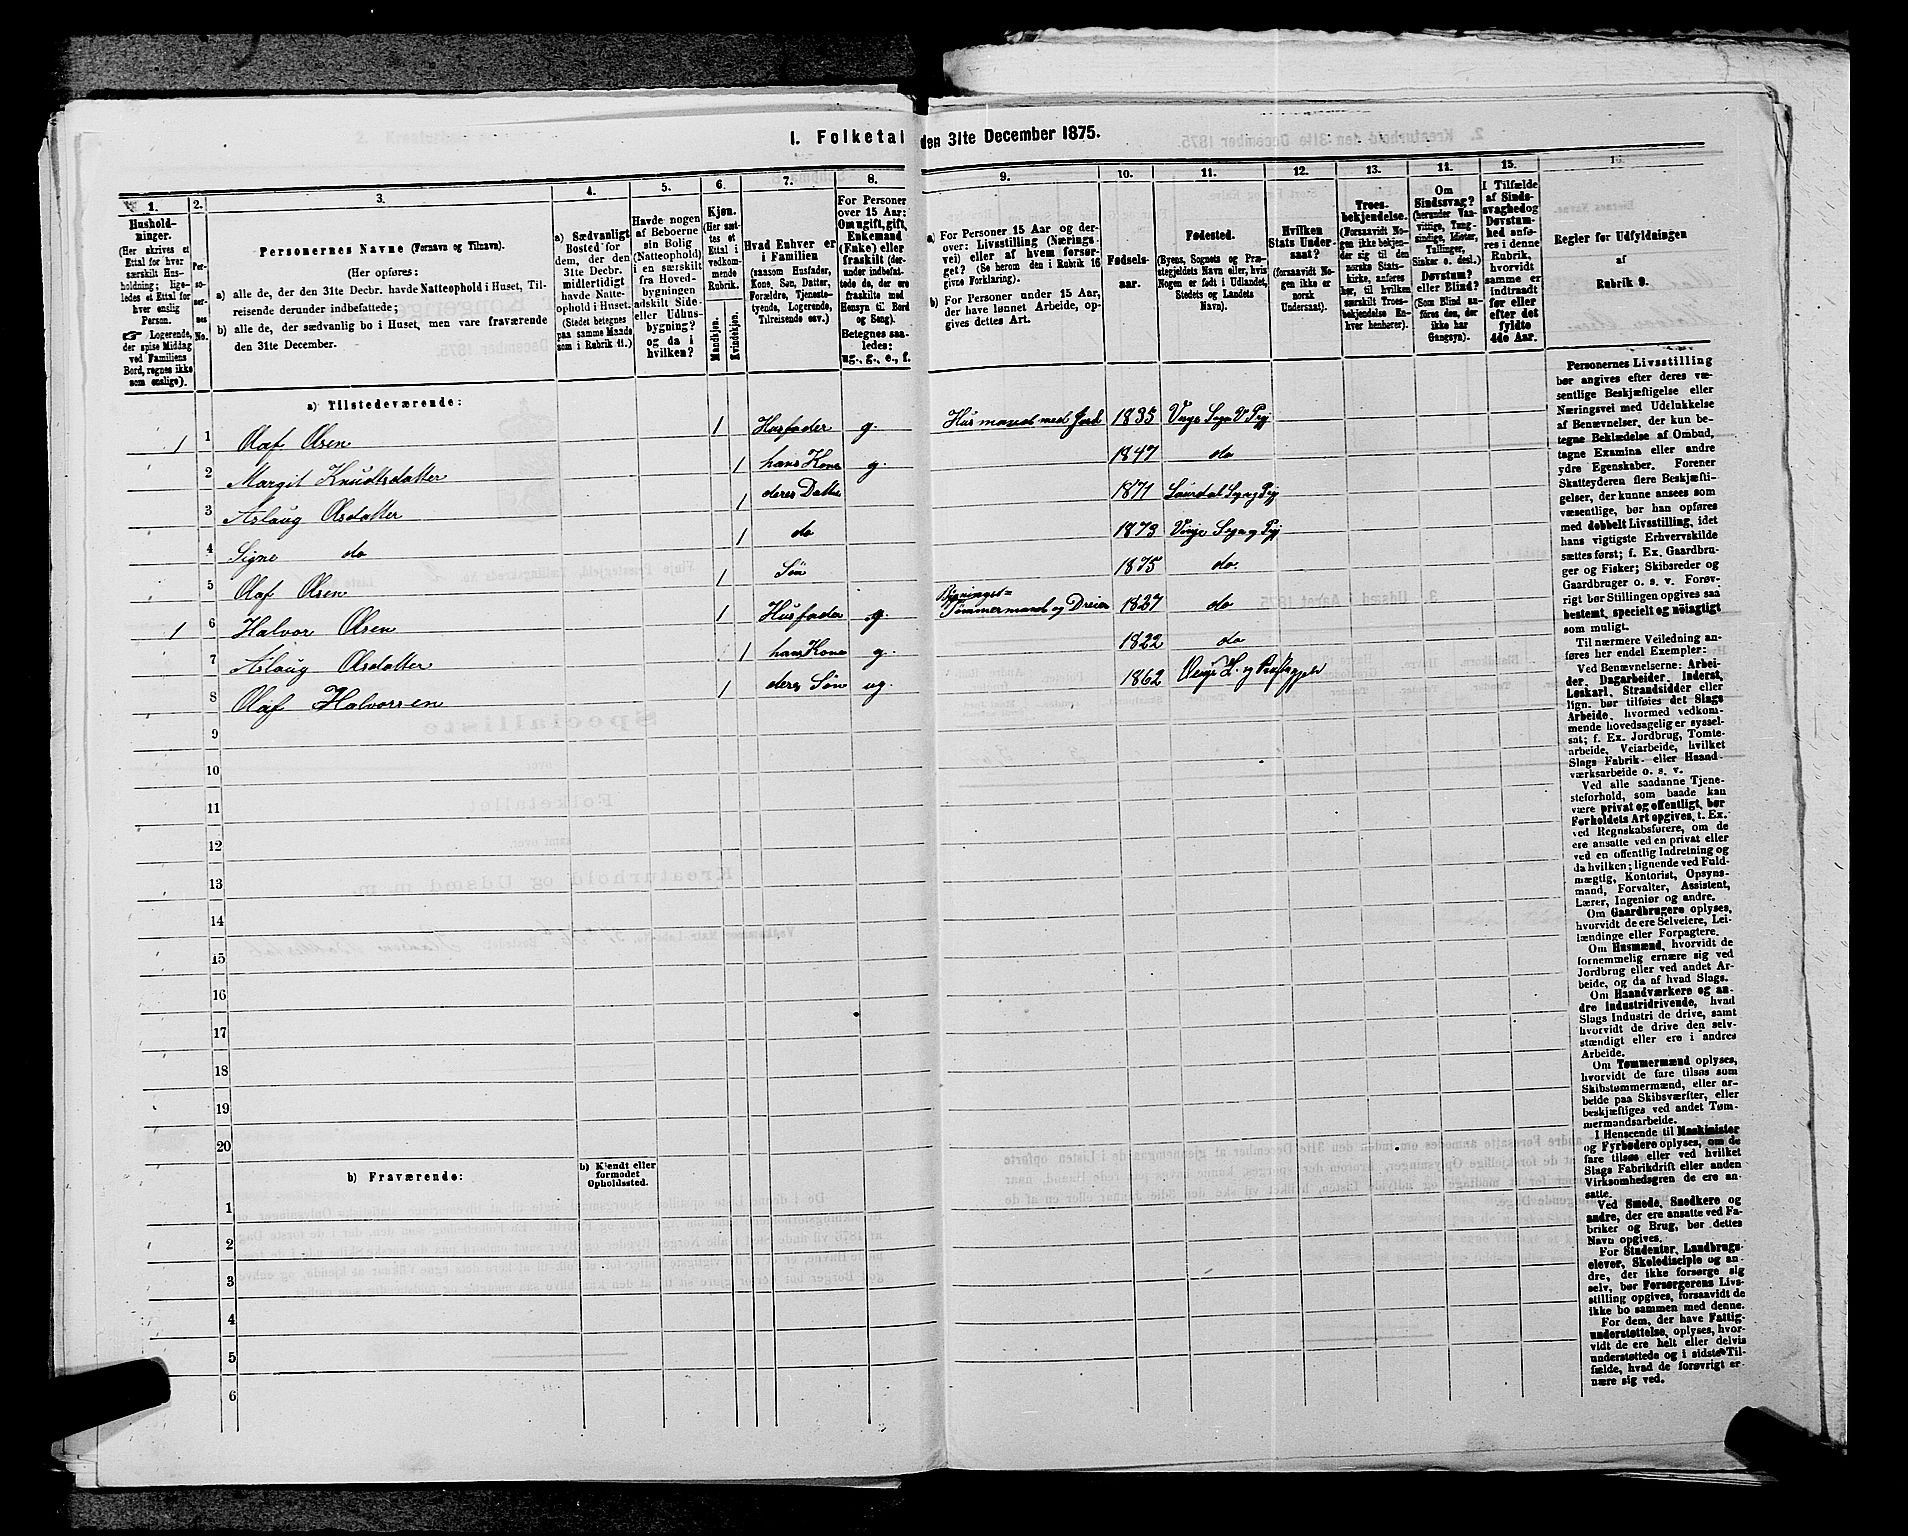 I. Folketal den 31te December 1875.
1. 2. 3. 4. 5. 6. 7. 8. 9. 10. 11. 12. 13. 14. 15. 16.
Husholdninger.
(Her skrives et
Ettal for hver
særskilt Husholdning; ligeledes et Ettal for
hver enslig
Person.
Logerende,
der spise Middag
ved Familiens
Bord, regnes ikke
som enslige).
Personernes No.
Personernes Navne (Fornavn og Tilnavn).
(Her opføres:
a) alle de, der den 31te Decbr. havde Natteophold i Huset, Tilreisende derunder indbefattede;
b) alle de, der sædvanlig bo i Huset, men vare fraværende
den 31te December.
a) Sædvanligt
Bosted for
dem, der den
31te Decbr.
midlertidigt
havde Natteophold i Huset.
(Stedet betegnes
paa samme Maade
som i Rubrik 11.)
Havde nogen
af Beboerne
sin Bolig
(Natteophold)
i en særskilt
fra Hovedbygningen
adskilt Side-
eller Udhusbygning?
og da i
hvilken?
Kjøn.
(Her sættes et
Ettal i
vedkommende
Rubrik.
Mandkjøn.
Kvindekjøn.
Hvad Enhver er
i Familien
(saasom Husfader,
Kone, Søn, Datter,
Forældre, Tjenestetyende, Logerende,
Tilreisende osv.)
For Personer
over 15 Aar:
Om ugift, gift,
Enkemand
(Enke) eller
fraskilt (derunder indbefattede de, der ere
fraskilte med
Hensyn til Bord
og Seng).
Betegnes saaledes:
ug., g., e., f.
a) For Personer 15 Aar og derover: Livsstilling (Næringsvei) eller af hvem forsørget? (Se herom den i Rubrik 16
givne Forklaring).
b) For Personer under 15 Aar,
der have lønnet Arbeide, opgives dettes Art.
Fødselsaar.
Fødested.
(Byens, Sognets og Præstegjeldets Navn eller, hvis
Nogen er født i Udlandet,
Stedets og Landets
Navn).
Hvilken
Stats Undersaat?
(forsaavidt Nogen ikke er
norsk
Undersaat).
Troesbekjendelse.
(Forsaavidt Nogen ikke bekjender sig til den
norske Statskirke, anføres
her, til hvilken
særskilt Troesbekjendelse Enhver henhører).
Om
Sindssvag?
(herunder Vanvittige, Tungsindige, Idioter,
Tullinger,
Sinker o. desl.)
Døvstum?
eller Blind?
(Som Blind anføres den, der
ikke har
Gangsyn).
I Tilfælde
af Sindssvaghed og
Døvstumhed anføres i denne
Rubrik,
hvorvidt
samme er
indtraadt
før eller
efter det
fyldte
4de Aar.
Regler for Udfyldningen
af
Rubrik 9.
a) Tilstedeværende:
1 1 Olaf Olsen 1 Husfader g. Husmand med Jord 1835 Vinje Sogn V Pgj
2 Margit Knudtsdatter 1 hans Kone g. 1847 do
3 Aslaug Olsdatter 1 deres Datter 1871 Laurdal Sogn Pgj
4 Signe do 1 do 1873 Vinje Sogn og Pgj
5 Olaf Olsen 1 Søn 1875 do.
1 6 Halvor Olsen 1 Husfader g. Bygningst= Tømmermand og Dreier 1827 do
7 Aslaug Olsdatter 1 hans Kone g. 1822 do
8 Olaf Halvorsen 1 deres Søn ug. 1862
9
10
11
12
13
14
15
16
17
18
19
20
b) Fraværende:
b) Kjendt eller
formodet
Opholdssted.
1
2
3
4
5
6
Personernes Livsstilling
bør angives efter deres væsentlige Beskjæftigelse eller
Næringsvei med Udelukkelse
af Benævnelser, der kun betegne Beklædelse af Ombud,
tagne Examina eller andre
ydre Egenskaber. Forener
Skatteyderen flere Beskjæftigelser, der kunne ansees som
væsentlige, bør han opføres
med dobbelt Livsstilling, idet
hans vigtigste Erhvervskilde
sættes først; f. Ex. Gaardbruger og Fisker; Skibsreder og
Gaardbruger o. s. v. Forøvrigt bør Stillingen opgives saa
bestemt, specielt og nøiagtigt
som muligt.
Til nærmere Veiledning anføres her endel Exempler:
Ved Benævnelserne: Arbeider, Dagarbeider, Inderst,
Løskarl, Strandsidder eller
lign. bør tilføies det Slags
Arbeide, hvormed vedkommende hovedsagelig er sysselsat; f. Ex. Jordbrug, Tomtearbeide, Veiarbeide, hvilket
Slags Fabrik- eller Haandværksarbeide o. s. v.
Ved alle saadanne Tjenesteforhold, som baade kan
være privat og offentligt, bør
Forholdets Art opgives, t. Ex.
ved Regnskabsførere, om de
ere ansatte ved en privat eller
ved en offentlig Indretning og
da hvilken; lignende ved Fuldmægtig, Kontorist, Opsynsmand, Forvalter, Assistent,
Lærer, Ingeniør og andre.
Om Gaardbrugere oplyses,
hvorvidt de ere Selveiere, Leilændinge eller Forpagtere.
Om Husmænd, hvorvidt de
fornemmelig ernære sig ved
Jordbrug eller ved andet Arbeide, og da af hvad Slags.
Om Haandværkere og andre Industridrivende, hvad
Slags Industri de drive, samt
hvorvidt de drive den selvstændigt eller ere i andres
Arbeide.
Om Tømmermænd oplyses,
hvorvidt de fare tilsøs som
Skibstømmermænd, eller arbeide paa Skibsværfter, eller
beskjæftiges ved andet Tømmermandsarbeide.
I Henseende til Maskinister
og Fyrbødere oplyses, om de
fare tilsøs eller ved hvilket
Slags Fabrikdrift eller anden
Virksomhedsgren de ere ansatte.
Ved Smede, Snedkere og
andre, der ere ansatte ved Fabriker og Brug, bør dettes
Navn opgives.
For Studenter, Landbrugselever, Skoledisciple og andre, der ikke forsørge sig
selv, bør Forsørgerens Livsstilling opgives, forsaavidt de
ikke bo sammen med denne.
For dem, der have Fattigunderstøttelse, oplyses, hvorvidt de ere helt eller delvis
understøttede og i sidste Tilfælde, hvad de forøvrigt ernære sig ved.